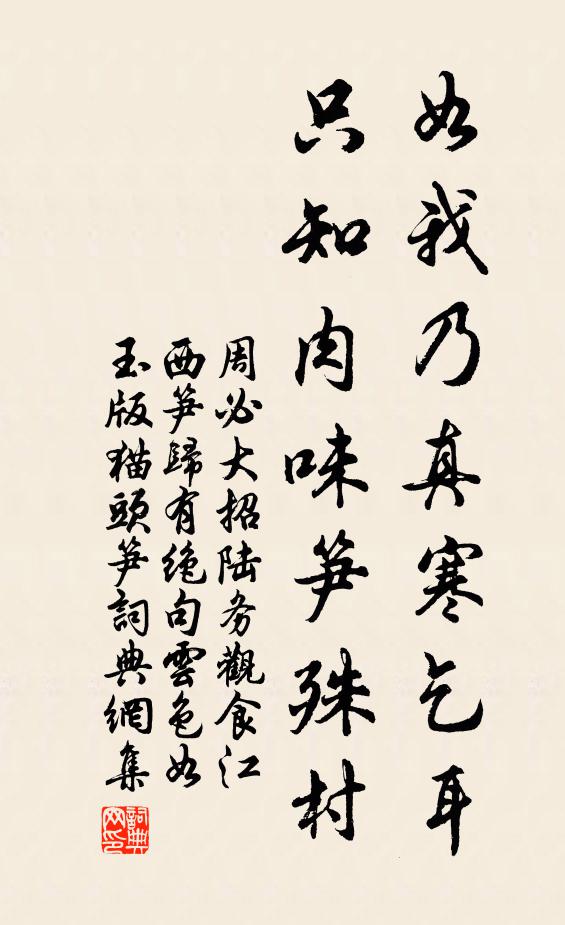 如我乃真寒乞耳
只知肉味笋殊村
周必大招陆务觀食江
西笋歸有绝句雲色如
玉版猫頭笋詞典網集
詞典网印